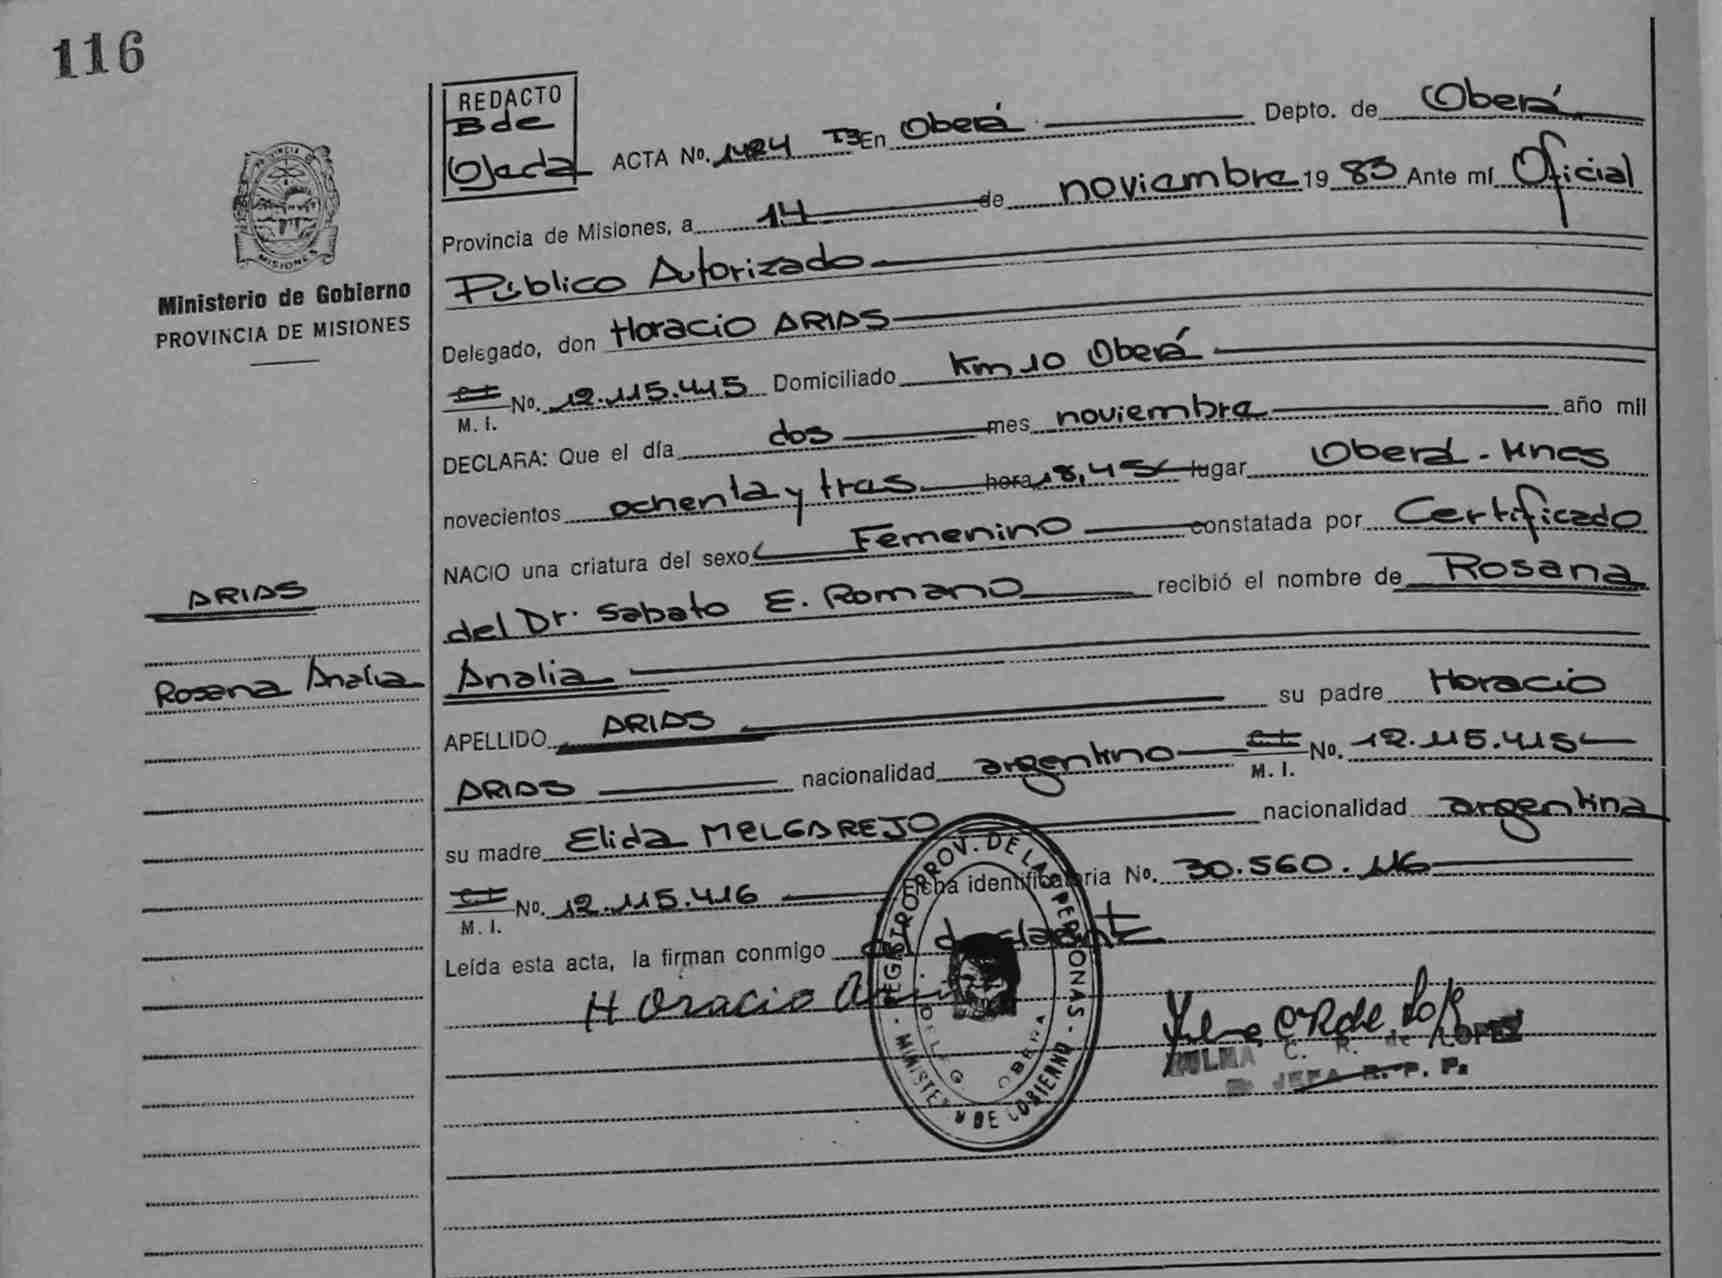 116
REDACTO
B de
Ojeda
ACTA No. 1424 T3 En Oberá Depto. de Oberá
Provincia de Misiones, a 14 de noviembre 19 83 Ante mí Oficial
Público Autorizado
Delegado, don Horacio ARIAS
M. I. No. 12.115.415 Domiciliado Km 10 Oberá
DECLARA: Que el día dos mes noviembre año mil
novecientos ochenta y tres hora 18,45 lugar Oberá - Mnes
NACIO una criatura del sexo Femenino constatada por Certificado
del Dr. Sabato E. Romano recibió el nombre de Rosana
Analia
APELLIDO ARIAS su padre Horacio
ARIAS nacionalidad argentino M. I. No. 12.115.415
su madre Elida MELGAREJO nacionalidad argentina
M. I. No. 12.115.416 Ficha identificatoria No. 30.560.116
Leída esta acta, la firman conmigo el declarante
Horacio Arias
ZULMA C. R. de LOPEZ
JEFA R. P. P.
REGISTRO PROV. DE LAS PERSONAS
MINISTERIO DE GOBIERNO
DELEG. OBERA
PROVINCIA DE
MISIONES
Ministerio de Gobierno
PROVINCIA DE MISIONES
ARIAS
Rosana Analia